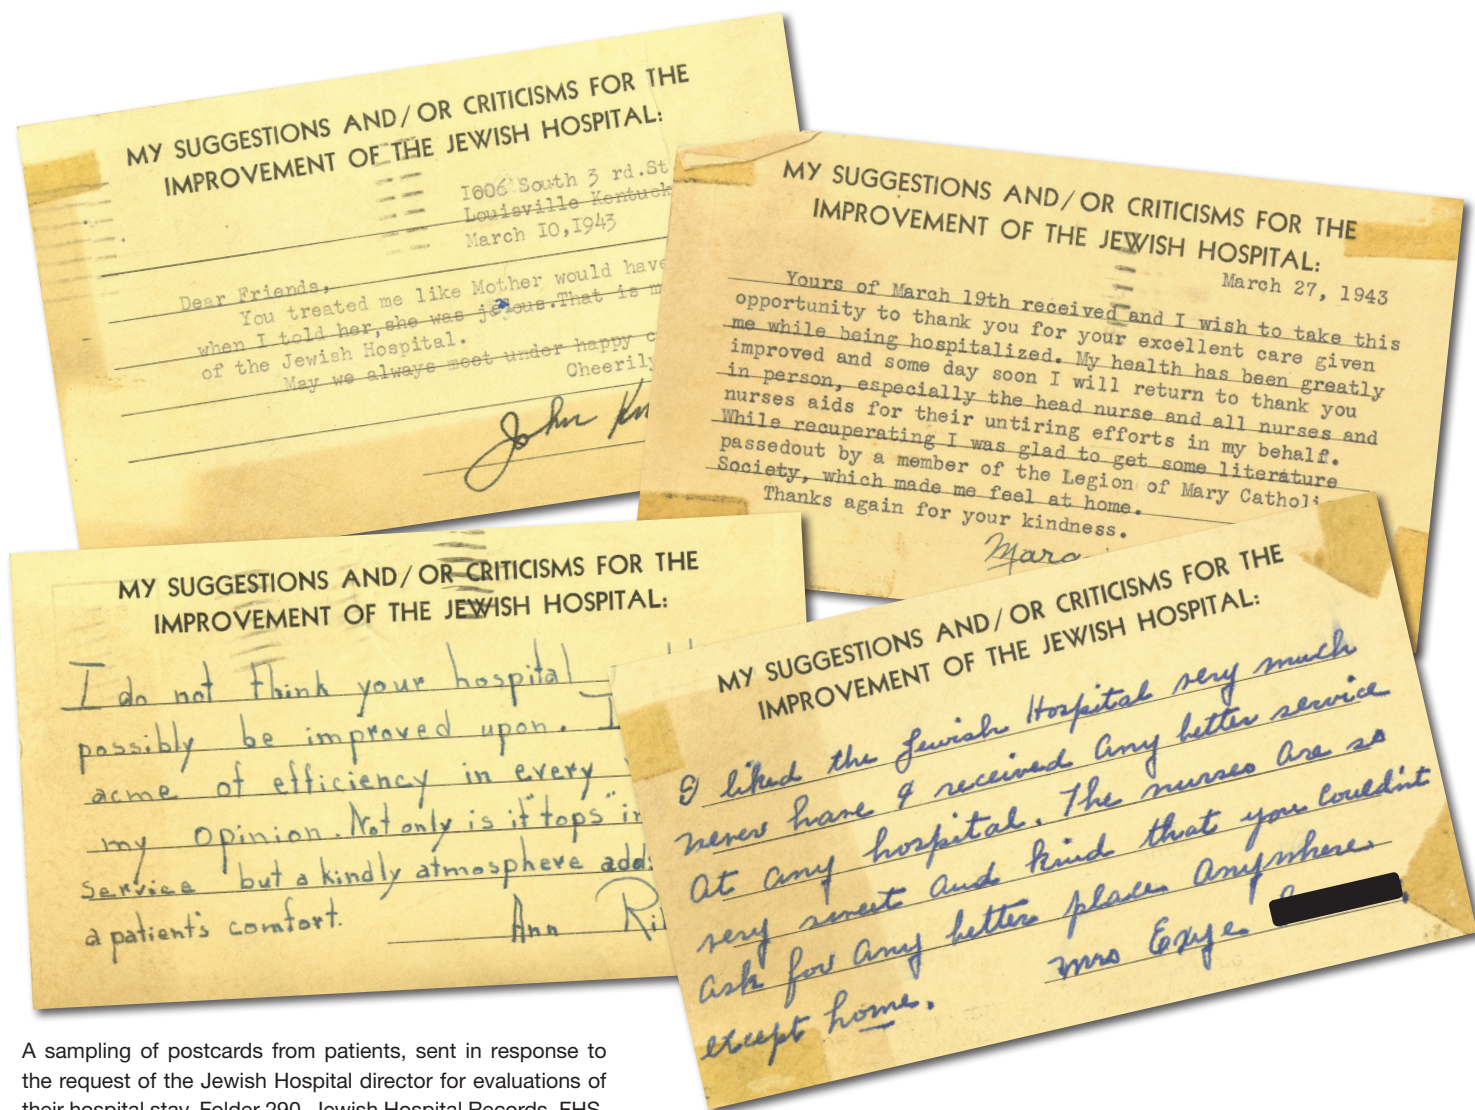 MY SUGGESTIONS AND/OR CRITICISMS FOR THE
IMPROVEMENT OF THE JEWISH HOSPITAL:
1606 South 3 rd.St
Louisville Kentuck
March 10,1943
Dear Friends,
You treated me like Mother would have
when I told her,she was jealous.That is m
of the Jewish Hospital.
May we always meet under happy c
Cheerily
John
MY SUGGESTIONS AND/OR CRITICISMS FOR THE
IMPROVEMENT OF THE JEWISH HOSPITAL:
March 27, 1943
Yours of March 19th received and I wish to take this
opportunity to thank you for your excellent care given
me while being hospitalized. My health has been greatly
improved and some day soon I will return to thank you
in person, especially the head nurse and all nurses and
nurses aids for their untiring efforts in my behalf.
While recuperating I was glad to get some literature
passedout by a member of the Legion of Mary Catholi
Society, which made me feel at home.
Thanks again for your kindness.
Marg
MY SUGGESTIONS AND/OR CRITICISMS FOR THE
IMPROVEMENT OF THE JEWISH HOSPITAL:
I do not think your hospital
possibly be improved upon. I
acme of efficiency in every
my opinion. Not only is it "tops" in
service but a kindly atmosphere adds
a patient's comfort.
Ann Ril
MY SUGGESTIONS AND/OR CRITICISMS FOR THE
IMPROVEMENT OF THE JEWISH HOSPITAL:
I liked the Jewish Hospital very much
never have I received any better service
at any hospital. The nurses are so
very sweet and kind that you couldn't
ask for any better place anywhere
except home.
Mrs Exye
A sampling of postcards from patients, sent in response to
the request of the Jewish Hospital director for evaluations of
their hospital stay. Folder 290, Jewish Hospital Records, FHS.